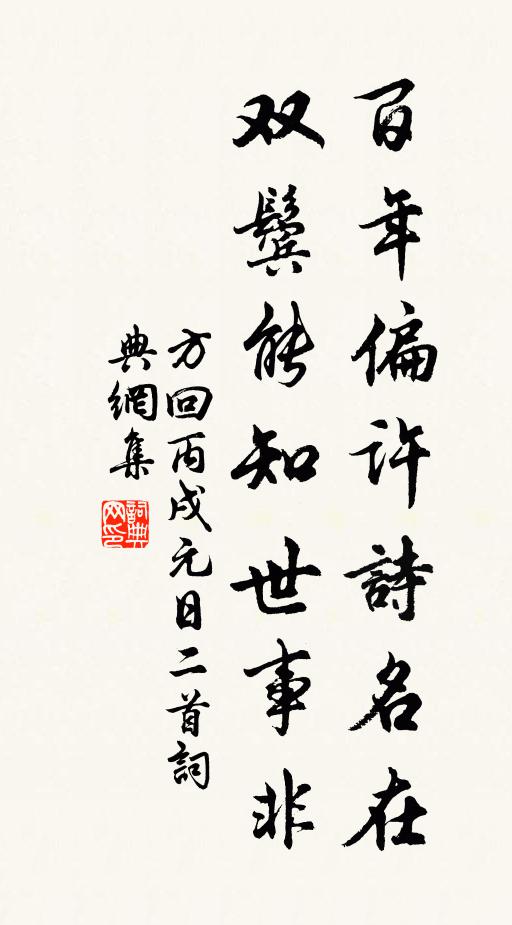 百年偏许詩名在
双鬓能知世事非
方回丙戌元日二首詞
典網集
詞典网印